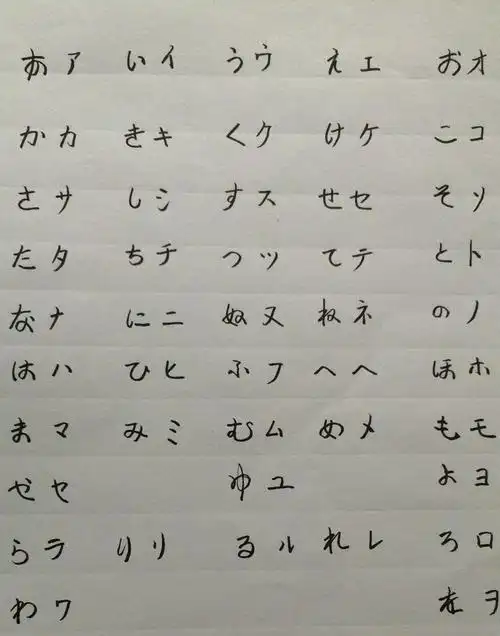 あア いイ うウ えエ おオ
かカ きキ くク けケ こコ
さサ しシ すス せセ そソ
たタ ちチ つツ てテ とト
なナ にニ ぬヌ ねネ のノ
はハ ひヒ ふフ へヘ ほホ
まマ みミ むム めメ もモ
やヤ ゆユ よヨ
らラ りリ るル れレ ろロ
わワ をヲ